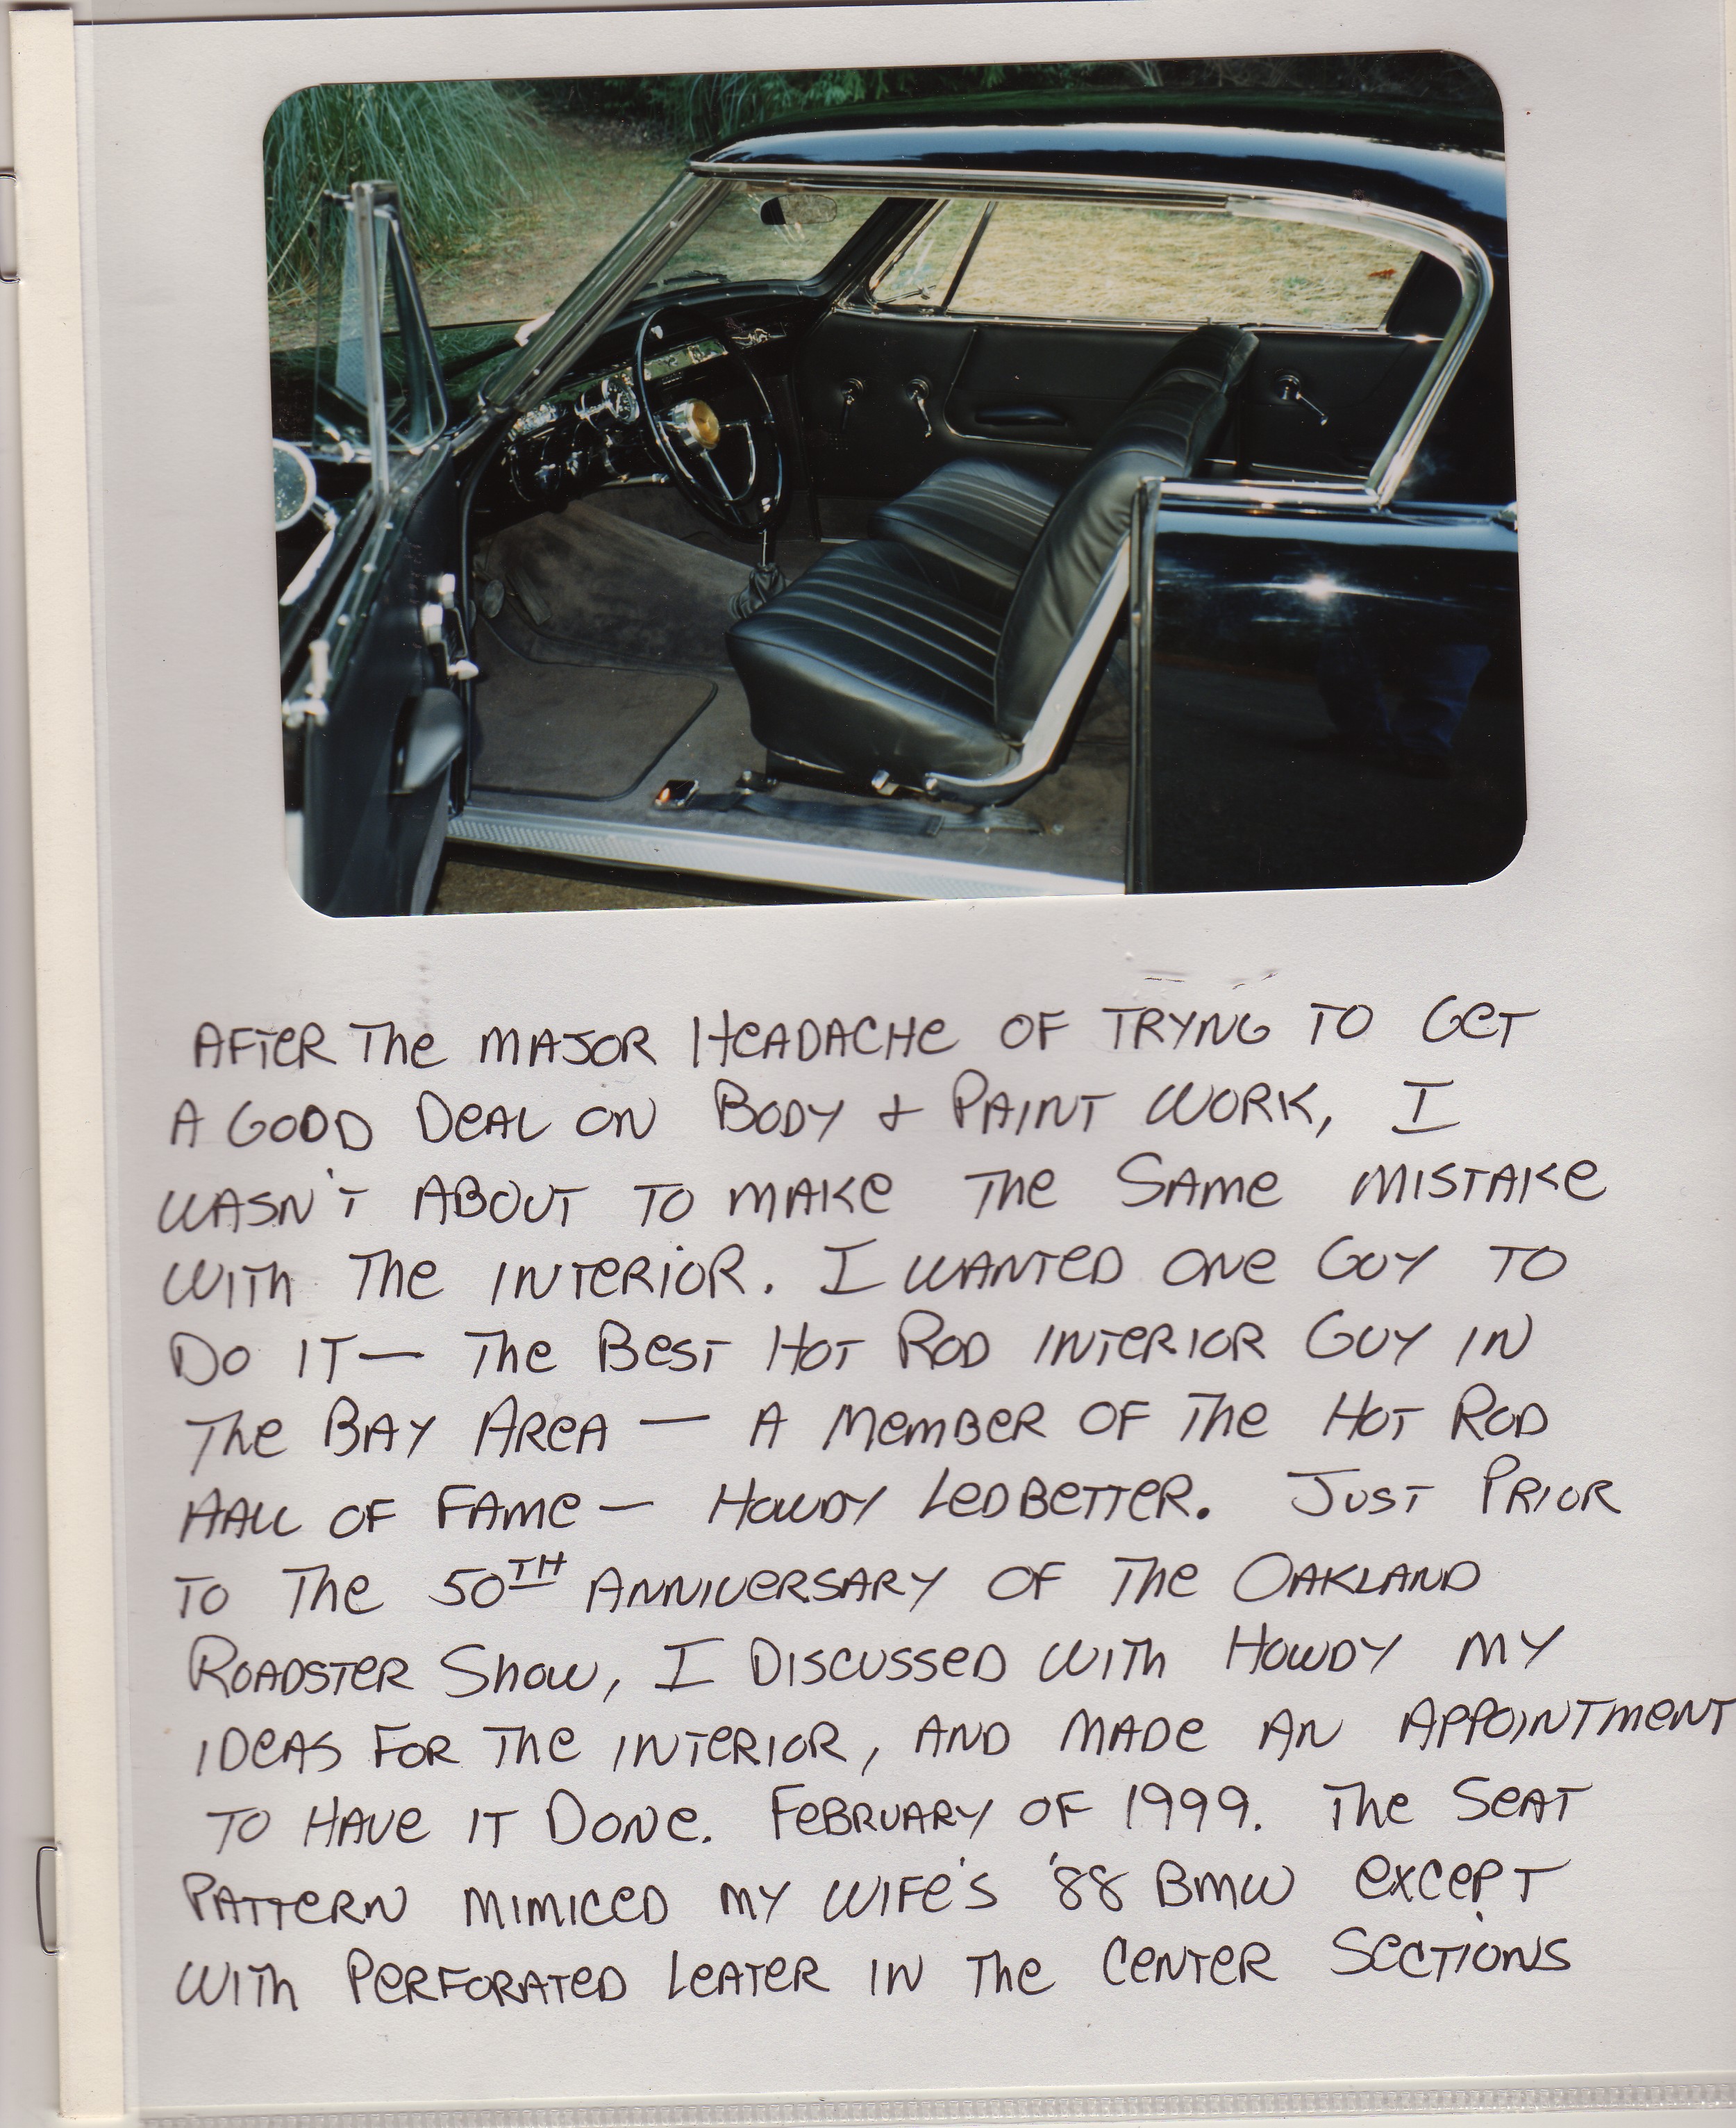 AFTER THE MAJOR HEADACHE OF TRYNG TO GET
A GOOD DEAL ON BODY & PAINT WORK, I
WASN'T ABOUT TO MAKE THE SAME MISTAKE
WITH THE INTERIOR. I WANTED ONE GUY TO
DO IT — THE BEST HOT ROD INTERIOR GUY IN
THE BAY AREA — A MEMBER OF THE HOT ROD
HALL OF FAME — HOWDY LEDBETTER. JUST PRIOR
TO THE 50TH ANNIVERSARY OF THE OAKLAND
ROADSTER SHOW, I DISCUSSED WITH HOWDY MY
IDEAS FOR THE INTERIOR, AND MADE AN APPOINTMENT
TO HAVE IT DONE. FEBRUARY OF 1999. THE SEAT
PATTERN MIMICED MY WIFE'S '88 BMW EXCEPT
WITH PERFORATED LEATER IN THE CENTER SECTIONS